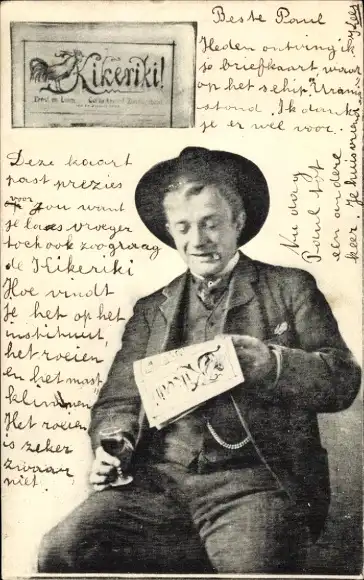 Kikeriki!
Beste Paul
Heden ontving ik
je briefkaart waar
op het schip Uran
stond. Ik dank
je er wel voor.
Deze kaart
past prezies
voor jou want
je laas vroeger
toch ook zoo graag
de Kikeriki
Hoe vindt
je het op het
instituut,
het roeien
en het mast
klimmen
Het roeien
is zeker
zwaar
niet.
Nu dag
Paul tot
een andere
keer je
Kikeriki